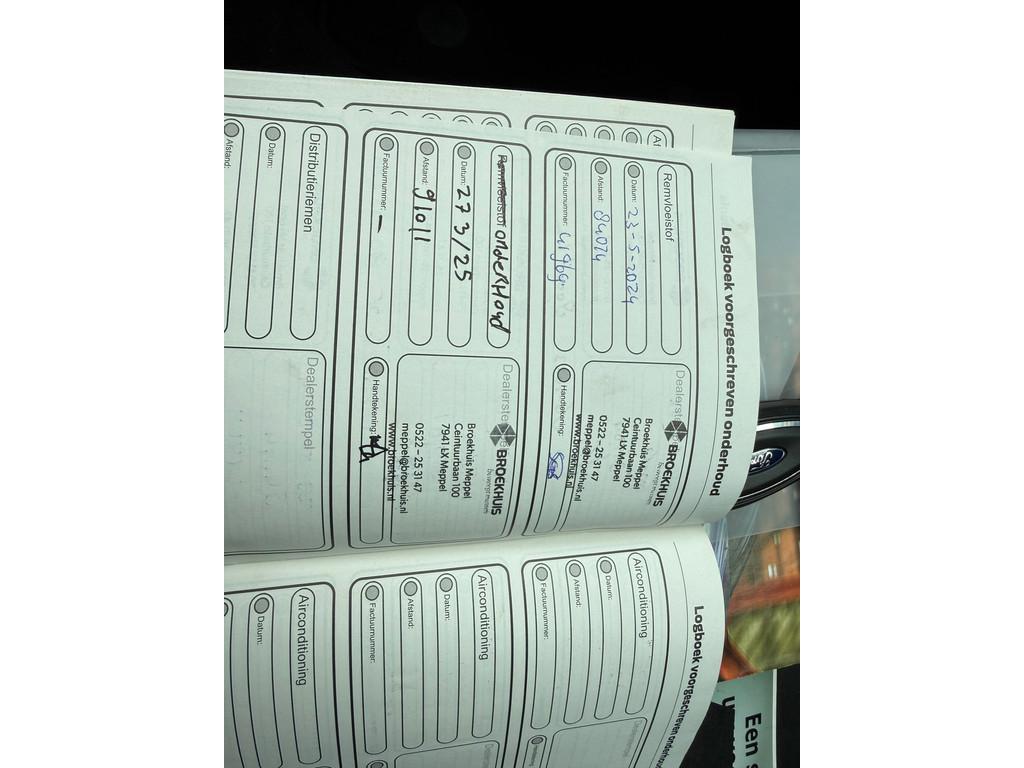 Logboek voorgeschreven onderhoud
Remvloeistof
Datum: 23-5-2024
Afstand: 84074
Factuurnummer:
Dealerste
BROEKHUIS
Broekhuis Meppel
Ceintuurbaan 100
7941 LX Meppel
0522 - 25 31 47
meppel@broekhuis.nl
www.broekhuis.nl
Handtekening:
Remvloeistof onderHoud
Datum: 27 3/25
Afstand: 91011
Factuurnummer: -
Dealerste
BROEKHUIS
Broekhuis Meppel
Ceintuurbaan 100
7941 LX Meppel
0522 - 25 31 47
meppel@broekhuis.nl
www.broekhuis.nl
Handtekening:
Distributieriemen
Datum:
Afstand:
Dealerstempel
Logboek voorgeschreven onderhoud
Airconditioning
Datum:
Afstand:
Factuurnummer:
Airconditioning
Datum:
Afstand:
Factuurnummer:
Airconditioning
Datum:
Ford
Een s